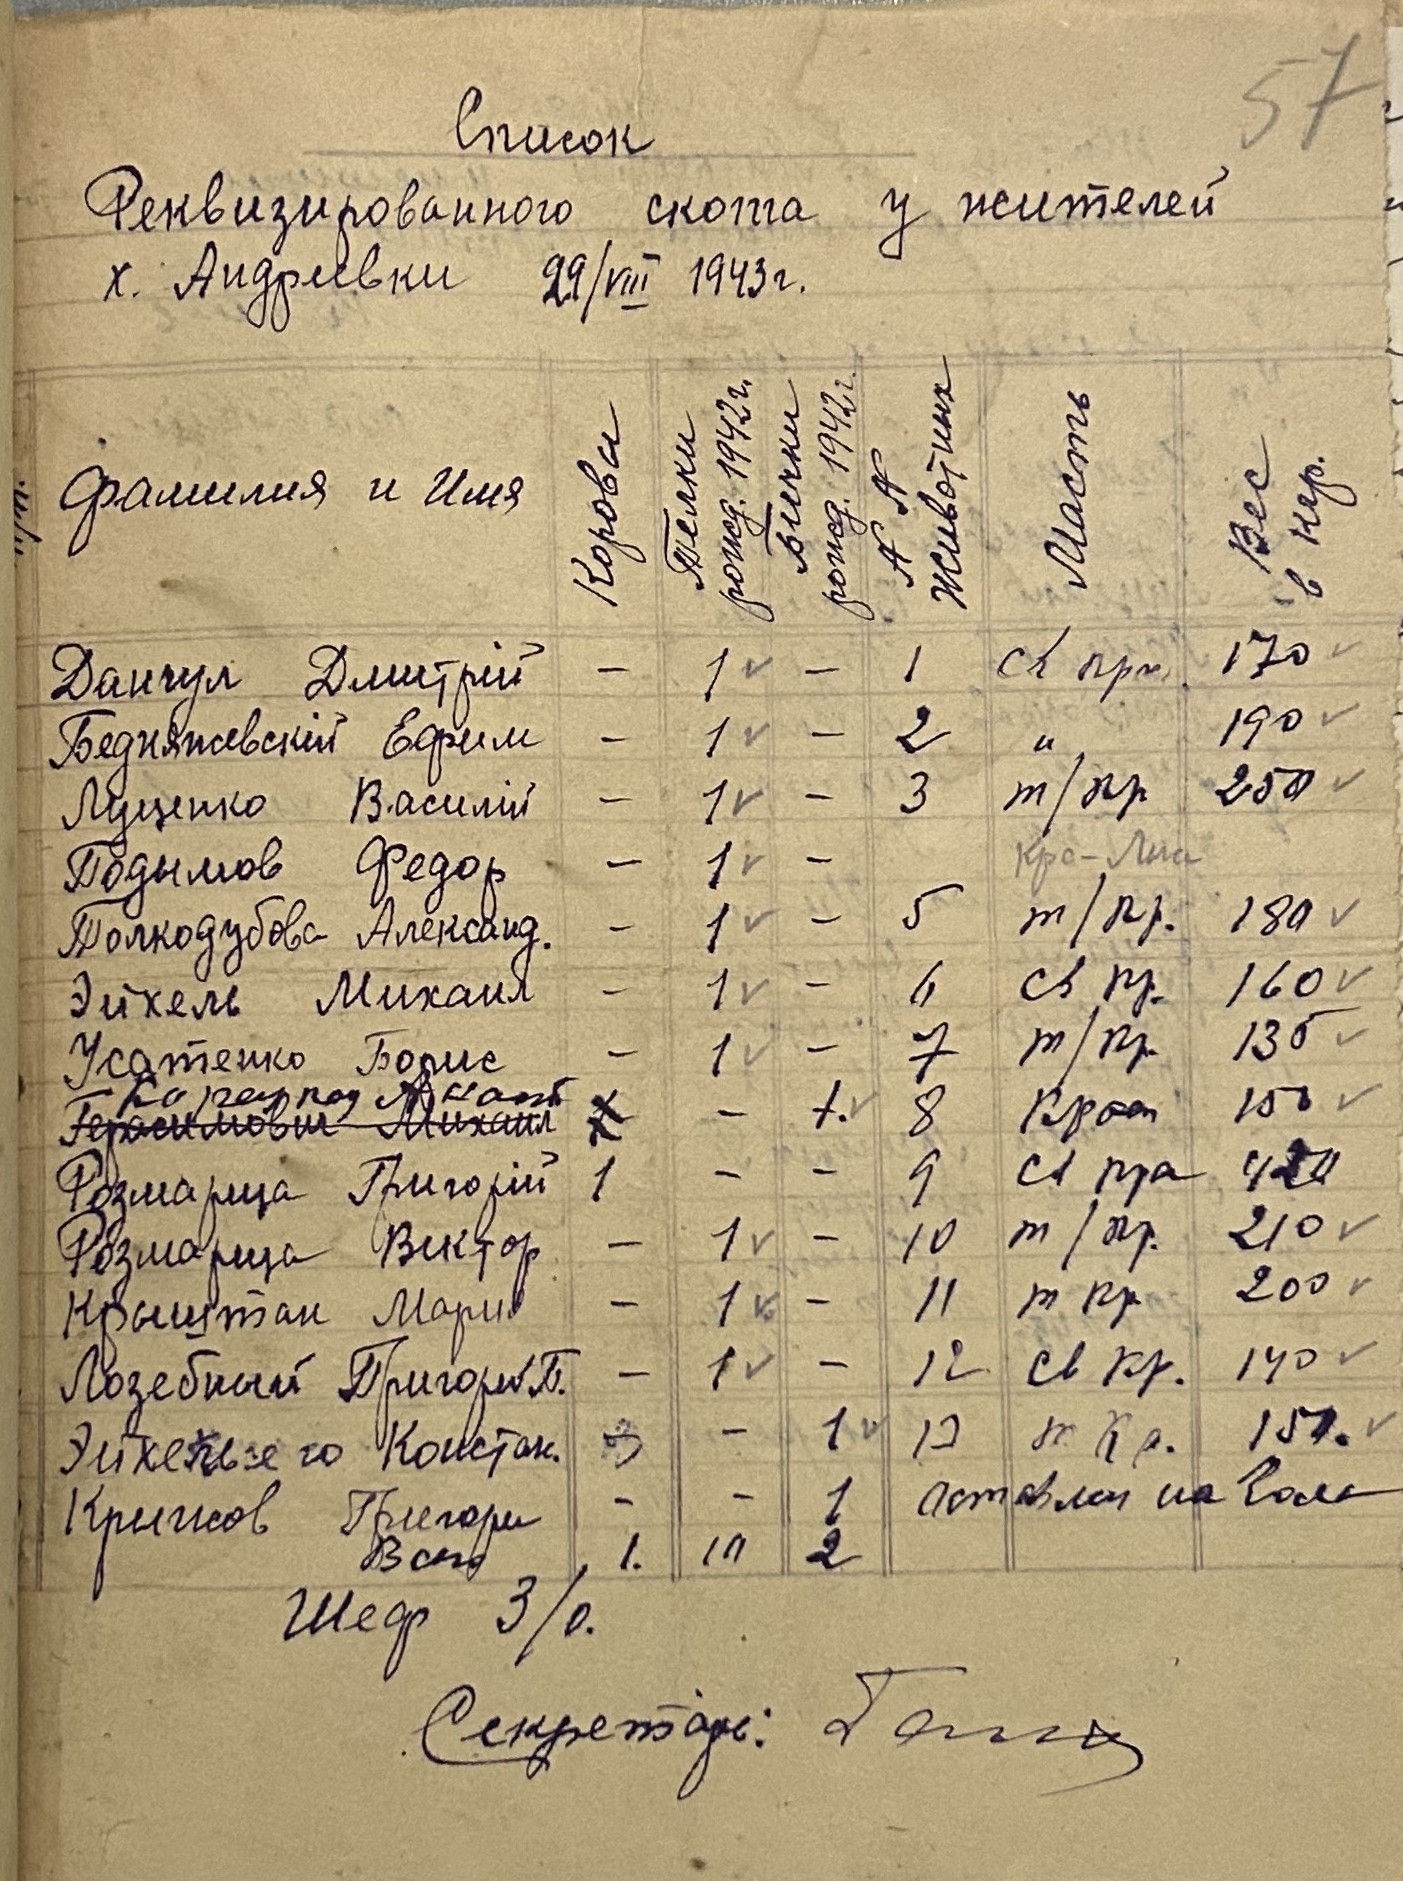 57
Список
Реквизированного скота у жителей
х. Андреевки 29/VIII 1943 г.
Фамилия и Имя Корова Телки рожд. 1942 г. Бычки рожд. 1942 г. № № животных Масть Вес в кгр.
Данчул Дмитрій – 1 ✓ – 1 св кра. 170 ✓
Бедняжевскій Ефим – 1 ✓ – 2 " 190 ✓
Луценко Василій – 1 ✓ – 3 т/кр 250 ✓
Подымов Федор – 1 ✓ – кра-
Толкодубова Александ. – 1 ✓ – 5 т/кр. 180 ✓
Эйхель Михаил – 1 ✓ – 6 св кр. 160 ✓
Усатенко Борис – 1 ✓ – 7 т/кр. 135 ✓
Герасимович Михаил – 1. ✓ 8 150 ✓
Розмарица Григорій 1 – – 9 св кра 420
Розмарица Виктор – 1 ✓ – 10 т/кр. 210 ✓
Крыштан Мария – 1 ✓ – 11 т кр 200 ✓
Лозебный Григорій П. – 1 ✓ – 12 св кр. 140 ✓
Констан. – 1 ✓ 13 т кра. 150. ✓
Крижов Григори – – 1 оставлен на
Всего 1. 10 2
Шеф З/О.
Секретарь: